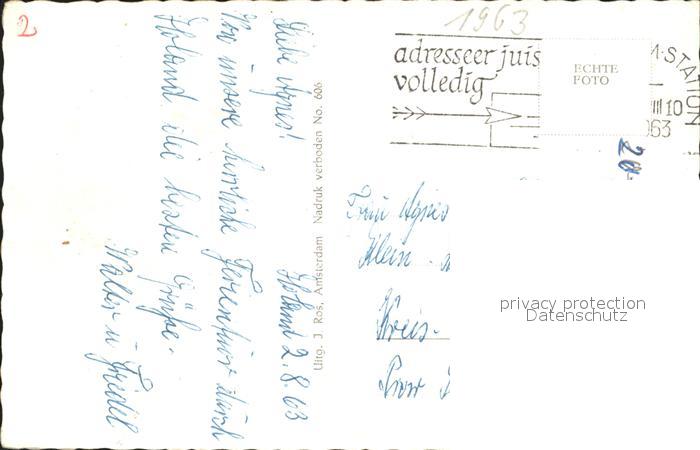 2
1963
adresseer juis
volledig
M-STATION
ECHTE
FOTO
VIII 10
1963
20-
Liebe Agnes!
Holland 2.8.63
Von unsere herrliche Ferientour durch
Holland die besten Grüße.
Walter u Friedel
Uitg. J. Ros, Amsterdam Nadruk verboden No. 606
Frau Agnes
Klein
Kreis
privacy protection
Datenschutz